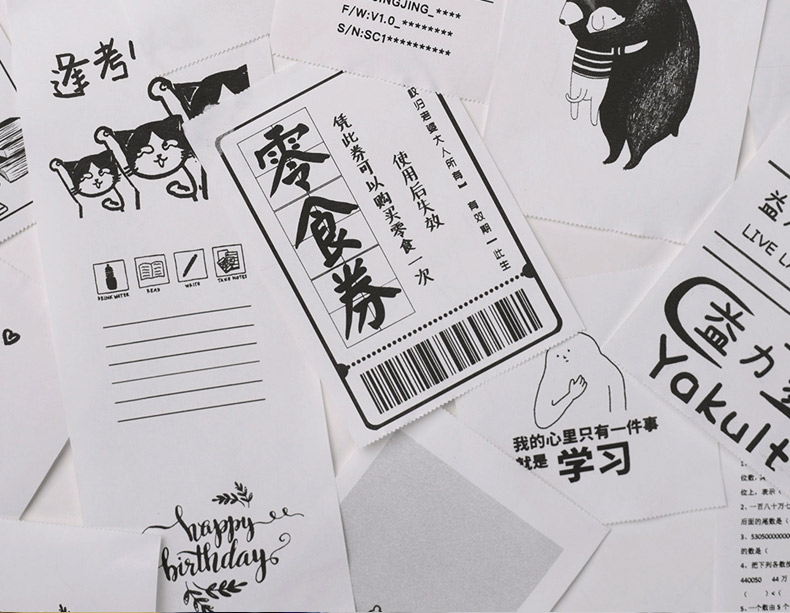 F/W:V1.0_********
S/N:SC1**********
逢考
DRINK WATER
READ
WRITE
TAKE NOTES
零食券
凭此券可以购买零食一次
使用后失效
大人所有】
有效期一此生
happy
birthday
我的心里只有一件事
就是 学习
益力
Yakult
位上,表示(
2、一百八十万七
后面的尾数是(
3、5305000000
的数是(
4、把下列各数按
440050 44万
( )<(
5、一个数由5个